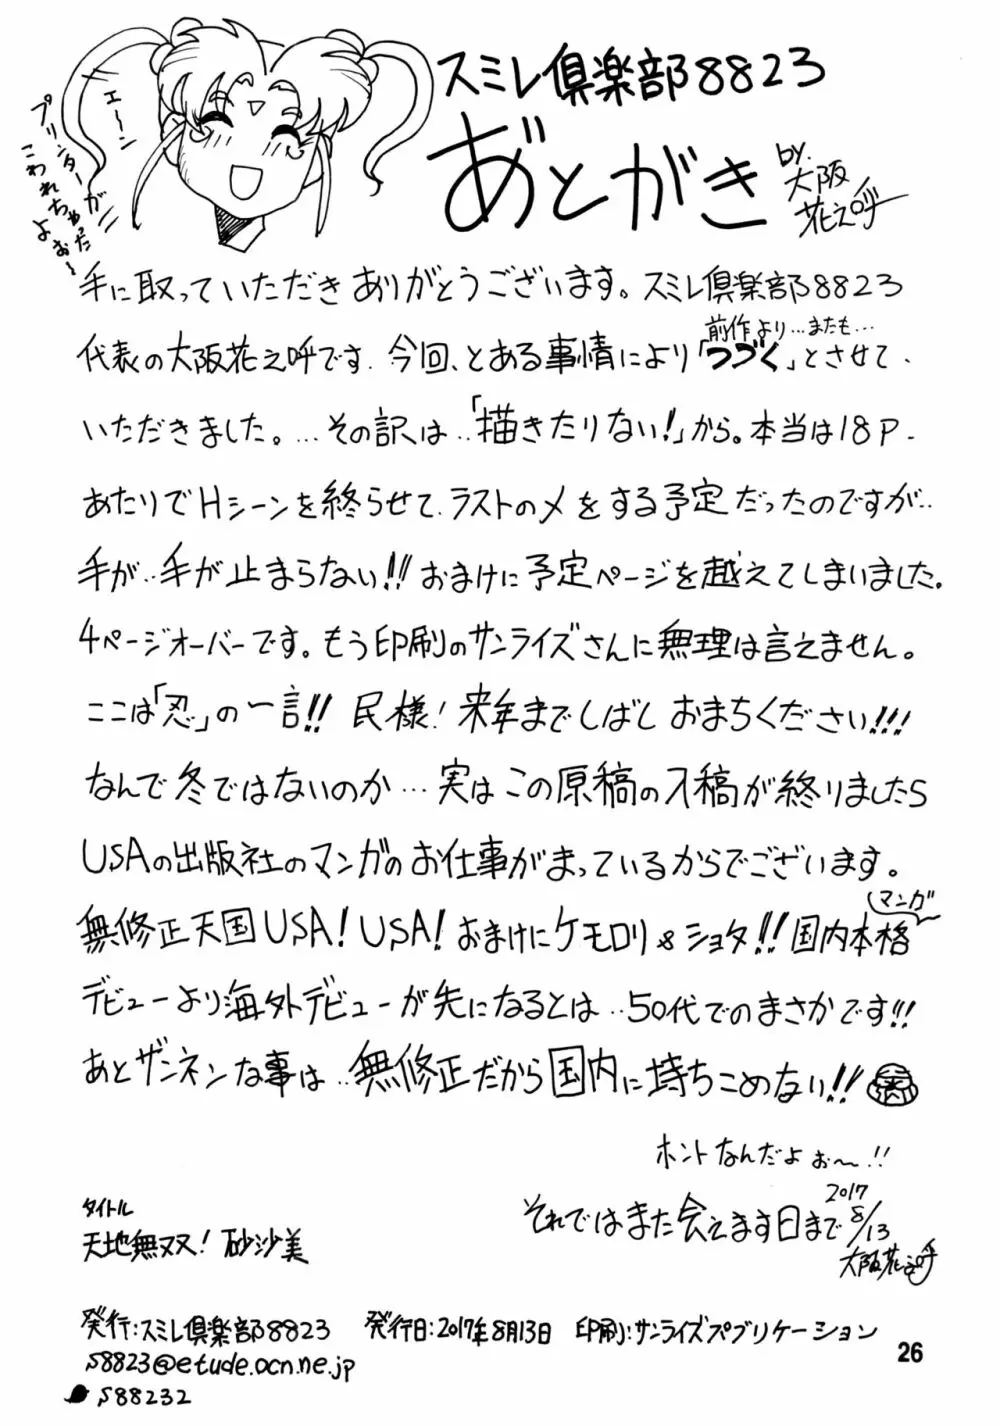 スミレ倶楽部8823
あとがき
by.大阪
花之呼
エ〜ン
プリンターが
こわれちゃった
よぉ〜
手に取っていただきありがとうございます。スミレ倶楽部8823
代表の大阪花之呼です.今回、とある事情により「つづく」とさせて、
前作より…またも…
いただきました。…その訳は‥「描きたりない!」から。本当は18P-
あたりでHシーンを終らせて、ラストの〆をする予定だったのですが‥
手が‥手が止まらない!!おまけに予定ページを越えてしまいました.
4ページオーバーです。もう印刷のサンライズさんに無理は言えません。
ここは「忍」の一言!!民様!来年までしばしおまちください!!!
なんで冬ではないのか…実はこの原稿の入稿が終りましたら
USAの出版社のマンガのお仕事がまっているからでございます。
無修正天国USA!USA!おまけにケモロリ&ショタ!!国内本格
マンガ
デビューより海外デビューが先になるとは‥50代でのまさかです!!
あとザンネンな事は‥無修正だから国内に持ちこめない!!
ホントなんだよぉ〜!!
それではまた会えます日まで
2017
8/13
大阪花之呼
タイトル
天地無双!砂沙美
発行:スミレ倶楽部8823 発行日:2017年8月13日 印刷:サンライズプブリケーション
s8823@etude.ocn.ne.jp
s88232
26